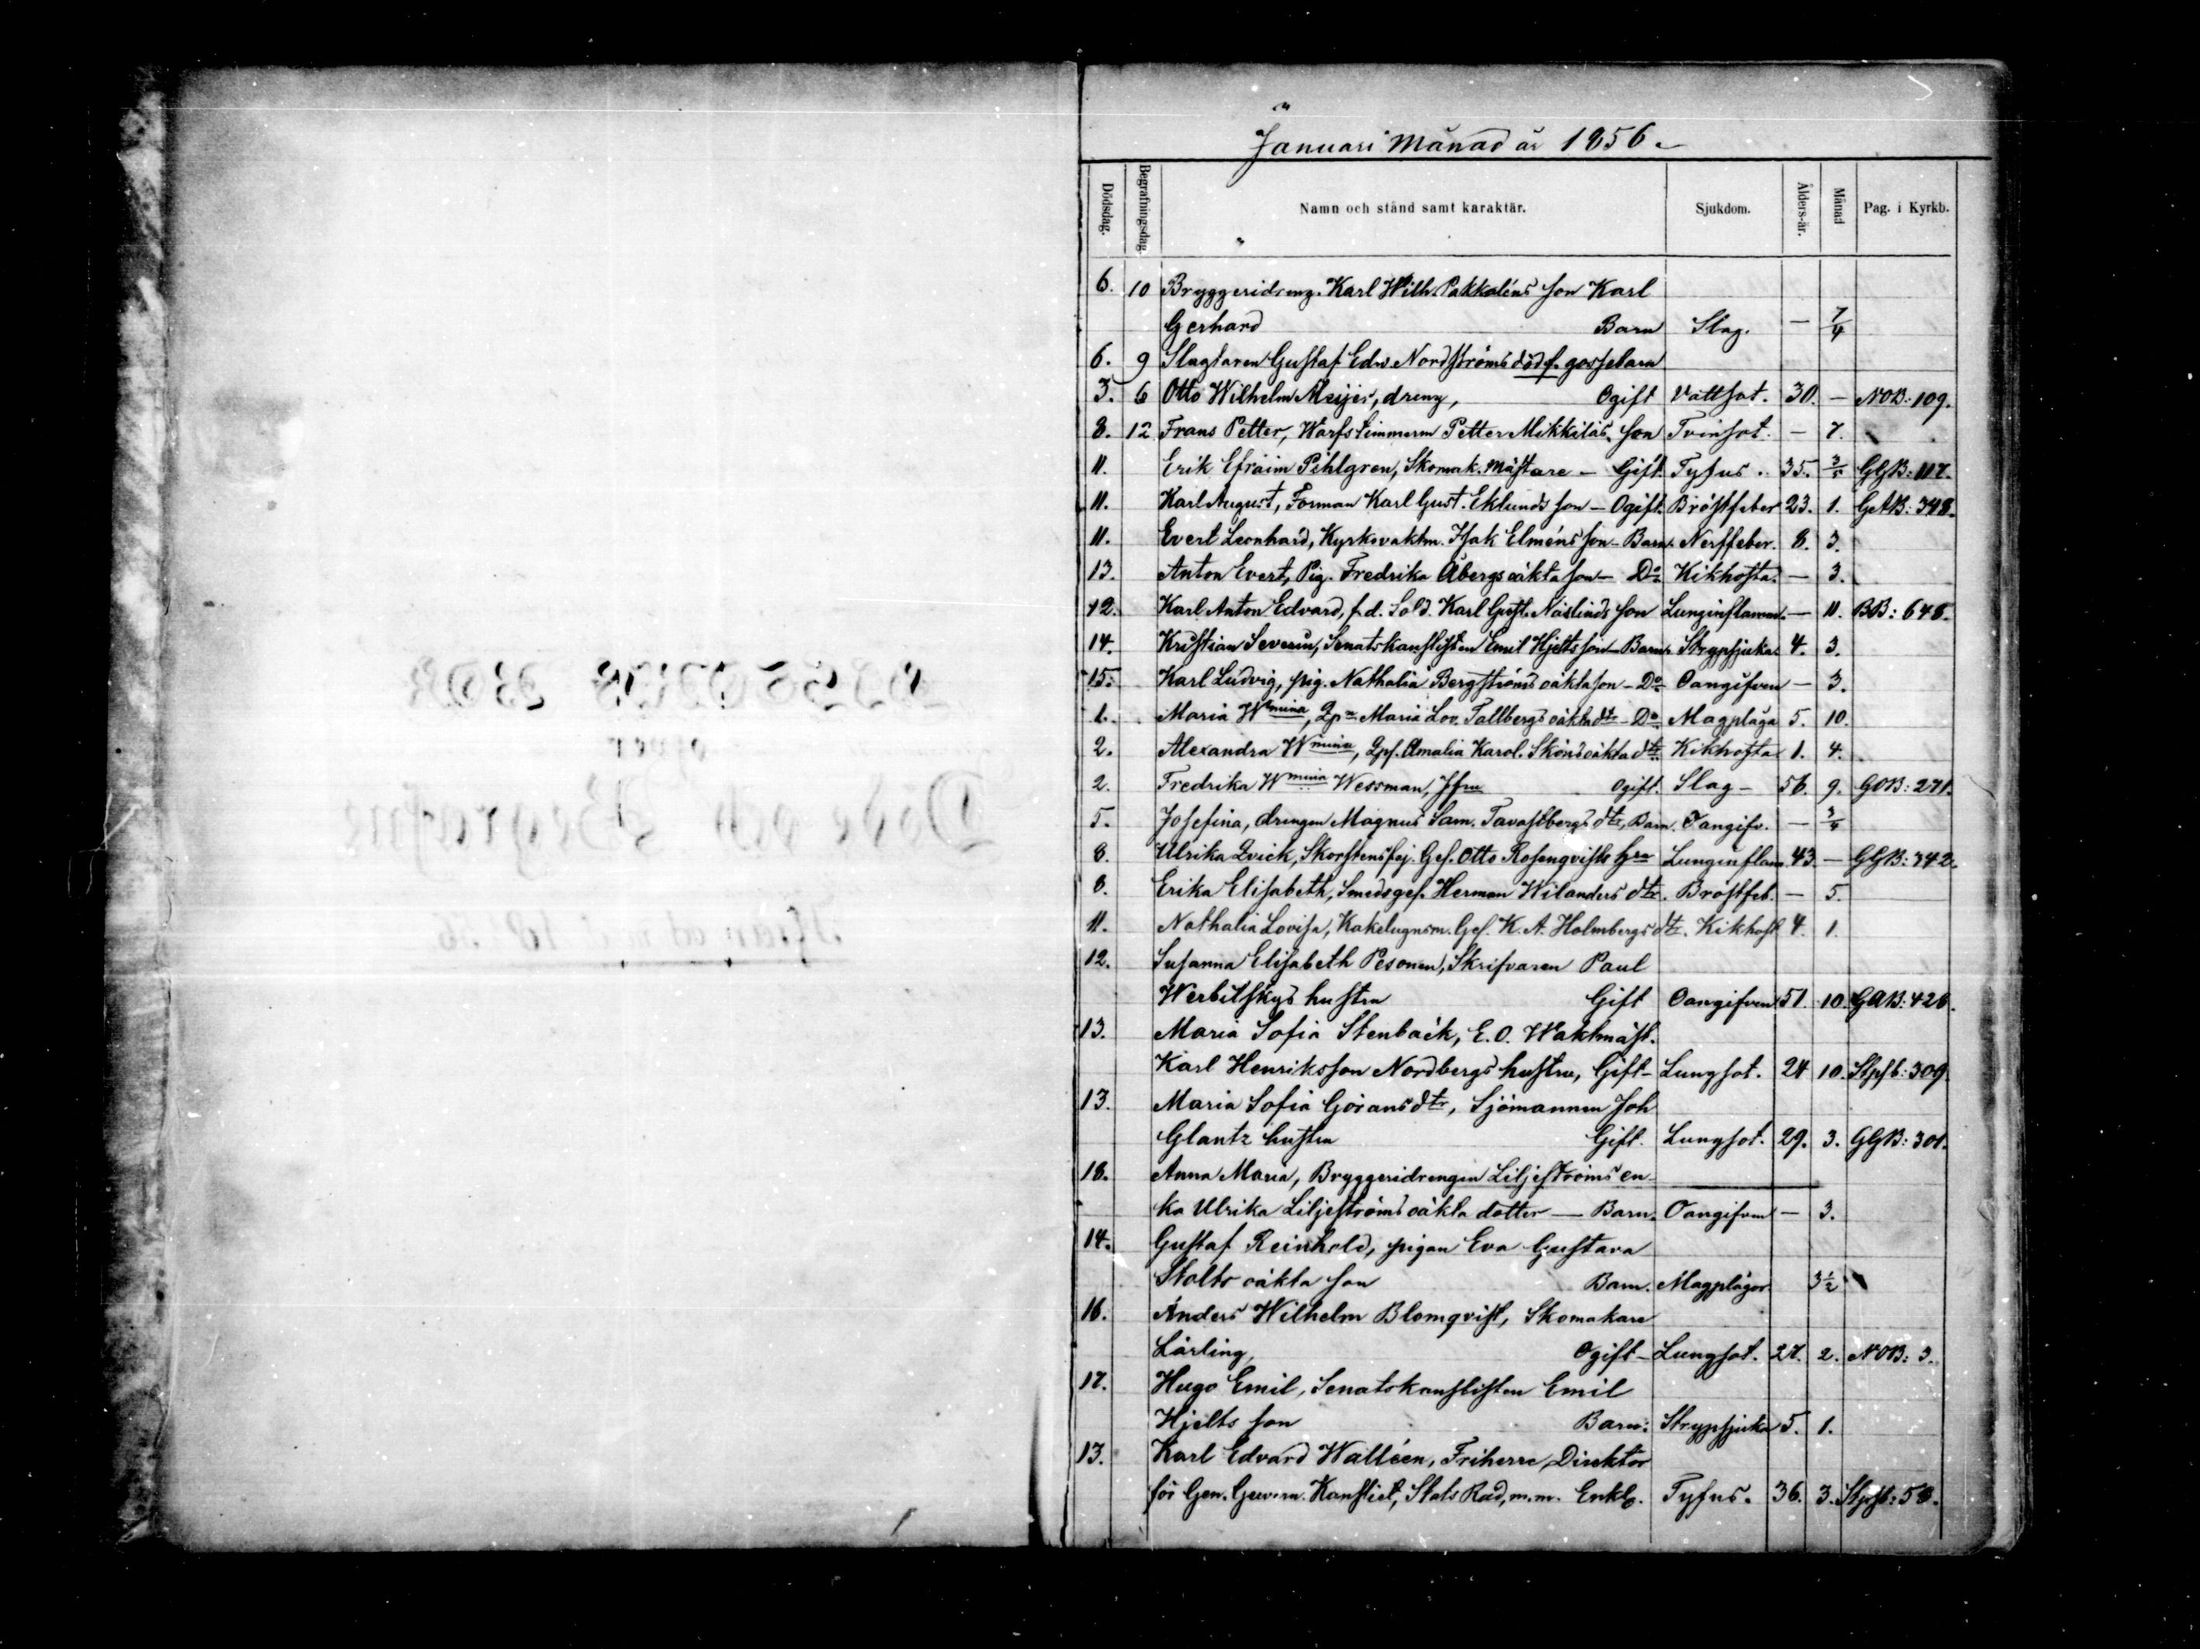 Januari Månad år 1856.
Dödsdag. Begrafningsdag Namn och stånd samt karaktär. Sjukdom. Ålders-år. Månad Pag. i Kyrkb.
6. 10 Bryggeridreng. Karl Wilh. Pakkaléns son Karl
Gerhard Barn Slag. — 7/4
6. 9 Slagtaren Gustaf Edv. Nordströms dödf. gossebarn
3. 6 Otto Wilhelm Meijer, dreng, Ogift Vattsot. 30. — NOB: 109.
8. 12 Frans Petter, Warfs Timmerm Petter Mikkiläs son Tvinsot. — 7.
11. Erik Efraim Pihlgren, Skomak. Mästare — Gift. Tyfus. 35. 3/5 GGB: 117.
11. Karl August, Forman Karl Gust. Eklunds son — Ogift. Bröstfeber 23. 1. GAB: 348.
11. Evert Leonhard, Kyrkovaktm. Isak Elméns son — Barn. Nerffeber. 8. 3.
13. Anton Evert, Pig. Fredrika Åbergs oäkta son — Do Kikhosta. — 3.
12. Karl Anton Edvard, f.d. Sold. Karl Gust. Näslinds son Lunginflamm. — 11. BB: 648.
14. Kristian Severin, Senatskanslisten Emil Hjelts son — Barn. Strypsjuka 4. 3.
15. Karl Ludvig, pig. Nathalia Bergströms oäkta son — Do Oangifven — 3.
1. Maria Wmina, Qpn Maria Lov. Tallbergs oäkta dtr — Do. Magplåga 5. 10.
2. Alexandra Wmina, Qpf. Amalia Karol. Sköns oäkta dtr. Kikhosta 1. 4.
2. Fredrika Wmina Wessman, Jfru Ogift. Slag — 56. 9. GOB: 271.
5. Josefina, drengen Magnus Sam. Tavastbergs dtr, Barn. Oangifv. — 3/4
8. Ulrika Qvick, Skorstensfej. Ges. Otto Rosenqvists Hru Lunginflam. 43 — GGB: 342.
8. Erika Elisabeth, Smedsges. Herman Wilanders dtr. Bröstfeb. — 5.
11. Nathalia Lovisa, Kakelugnsm. Ges. K. A. Holmbergs dtr. Kikhost 4. 1.
12. Susanna Elisabeth Pesonen, Skrifvaren Paul
Werbitskys hustru Gift Oangifven 51. 10. GAB: 426.
13. Maria Sofia Stenbäck, E. O. Waktmäst.
Karl Henriksson Nordbergs hustru, Gift — Lungsot. 24 10. Stpsb: 309.
13. Maria Sofia Göransdtr, Sjömannen Joh
Glantz hustru Gift. Lungsot. 29. 3. GGB: 301.
18. Anna Maria, Bryggeridrengen Liljeströms en-
ka Ulrika Liljeströms oäkta dotter — Barn. Oangifven — 3.
14. Gustaf Reinhold, pigan Eva Gustava
Stolts oäkta son Barn. Magplågor. 3½
16. Anders Wilhelm Blomqvist, Skomakare
Lärling, Ogift — Lungsot. 27. 2. NOB: 3.
17. Hugo Emil, Senatskanslisten Emil
Hjelts son Barn. Strypsjuka 5. 1.
13. Karl Edvard Walléen, Friherre, Direktör
för Gen. Guvern. Kansliet, Stats Råd, m.m. Enkl. Tyfus. 36. 3. Stpsb: 58.